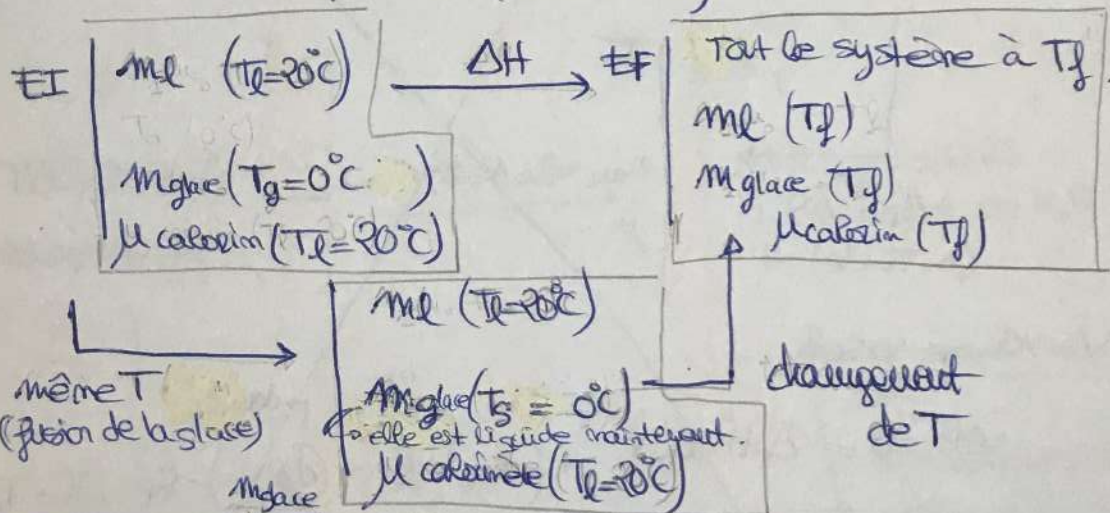 EI
ml (Tl=20°C)
mglace (Tg=0°C)
μ calorim (Tl=20°C)
ΔH
EF
Tout le système à Tf
ml (Tf)
mglace (Tf)
μcalorim (Tf)
même T
(fusion de la glace)
ml (Tl=20°C)
mglace (Tg = 0°C)
elle est liquide maintenant.
μ calorimètre (Tl=20°C)
changement
de T
mglace